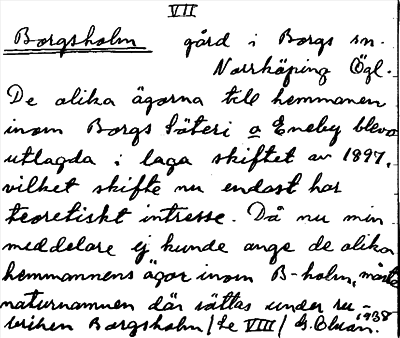 VII
Borgsholm gård i Borgs sn.
Norrköping Ögl.
De olika ägorna till hemmanen
inom Borgs Säteri o Eneby blevo
utlagda i laga skiftet av 1897,
vilket skifte nu endast har
teoretiskt intresse. Då nu min
meddelare ej kunde ange de olika
hemmannens ägor inom B-holm, måste
naturnamnen där sättas under ru-
briken Borgsholm/Se VIII/ 1938